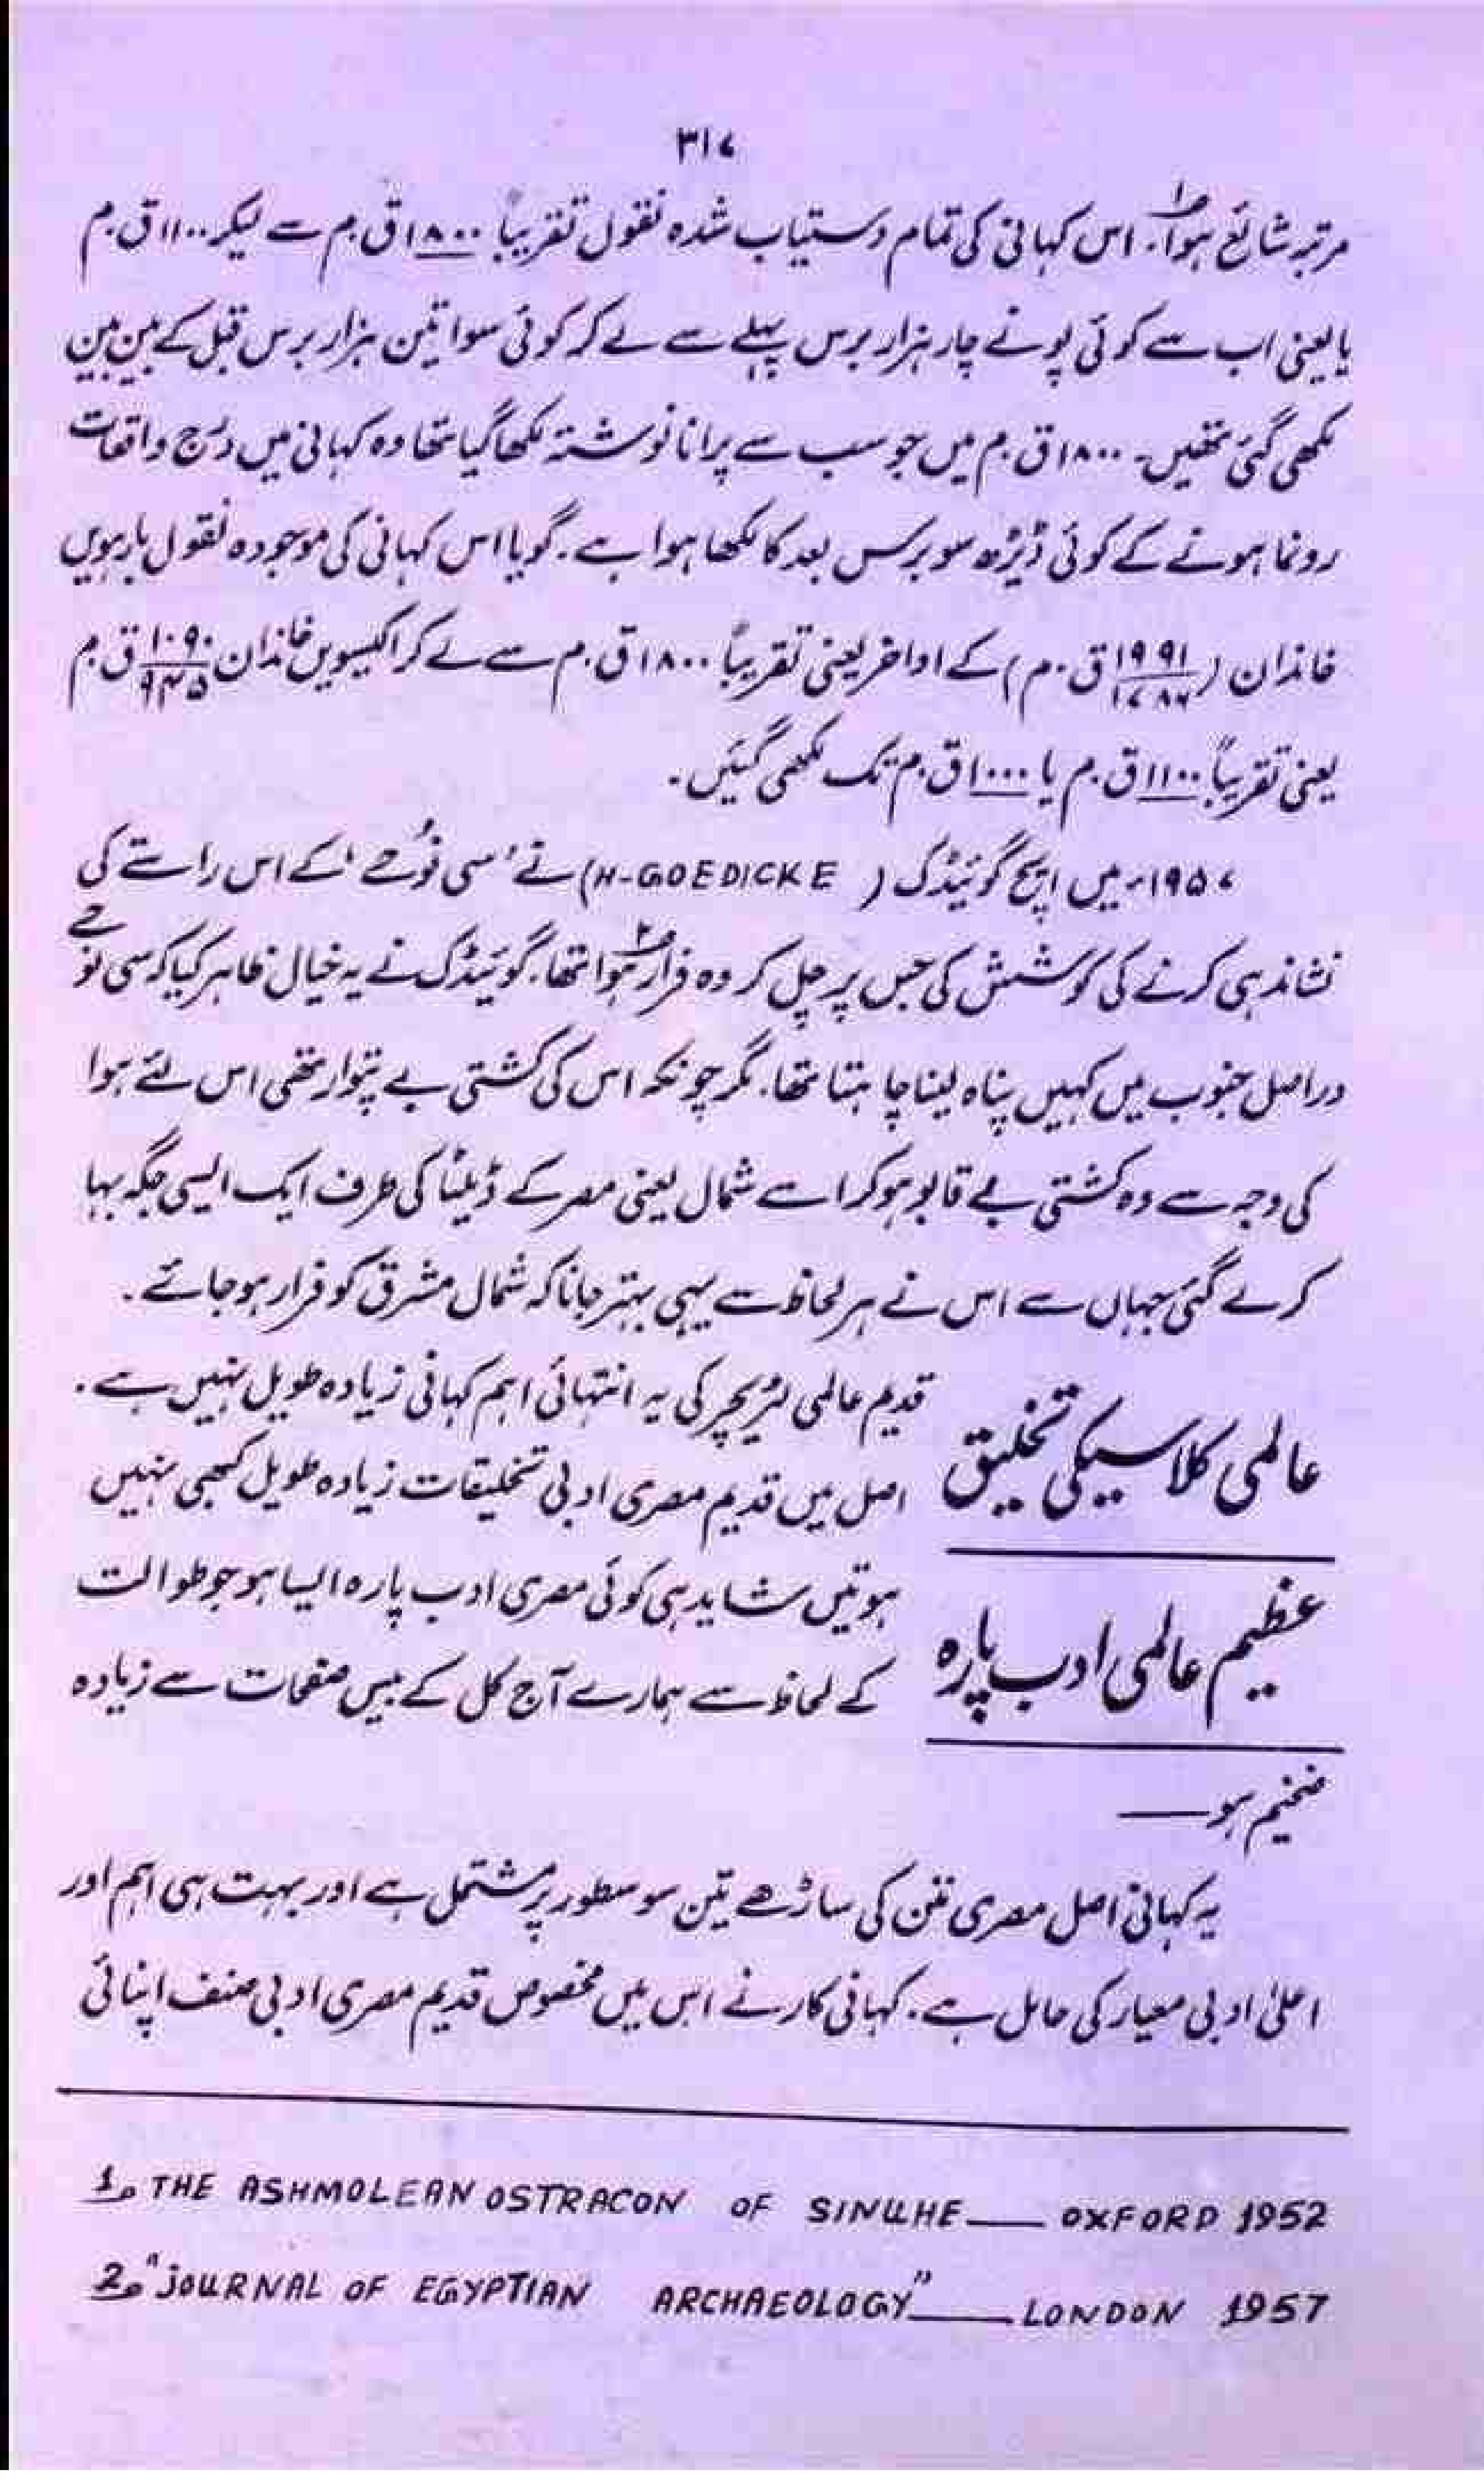 ۳۱۷
مرتبہ شائع ہوا۔ ۱؎ اس کہانی کی تمام دستیاب شدہ نقول تقریباً ۱۸۰۰ ق.م سے لیکر ۱۱۰۰ ق.م
یا یعنی اب سے کوئی پونے چار ہزار برس پہلے سے لے کر کوئی سوا تین ہزار برس قبل کے بین بین
لکھی گئی تھیں۔ ۱۸۰۰ ق.م میں جو سب سے پرانا نوشتہ لکھا گیا تھا وہ کہانی میں درج واقعات
رونما ہونے کے کوئی ڈیڑھ سو برس بعد کا لکھا ہوا ہے۔ گویا اس کہانی کی موجودہ نقول بارہویں
خاندان (۱۹۹۱/۱۷۸۶ ق.م) کے اواخر یعنی تقریباً ۱۸۰۰ ق.م سے لے کر اکیسویں خاندان ۱۰۹۰/۹۴۵ ق.م
یعنی تقریباً ۱۱۰۰ ق.م یا ۱۰۰۰ ق.م تک لکھی گئیں۔
۱۹۵۷ء میں ایچ گوئیڈک (H-GOEDICKE) نے 'سی نُوحے' کے اس راستے کی
نشاندہی کرنے کی کوشش کی جس پر چل کر وہ فرار ہوا تھا۔ ۲؎ گوئیڈک نے یہ خیال ظاہر کیا کہ سی نوحے
دراصل جنوب میں کہیں پناہ لینا چاہتا تھا۔ مگر چونکہ اس کی کشتی بے پتوار تھی اس لئے ہوا
کی وجہ سے وہ کشتی بے قابو ہو کر اسے شمال یعنی مصر کے ڈیلٹا کی طرف ایک ایسی جگہ بہا
کر لے گئی جہاں سے اس نے ہر لحاظ سے یہی بہتر جانا کہ شمال مشرق کو فرار ہو جائے۔
عالمی کلاسیکی تخلیق
عظیم عالمی ادب پارہ
قدیم عالمی لٹریچر کی یہ انتہائی اہم کہانی زیادہ طویل نہیں ہے۔
اصل میں قدیم مصری ادبی تخلیقات زیادہ طویل کبھی نہیں
ہوتیں شاید ہی کوئی مصری ادب پارہ ایسا ہو جو طوالت
کے لحاظ سے ہمارے آج کل کے بیس صفحات سے زیادہ
ضخیم ہو——
یہ کہانی اصل مصری متن کی ساڑھے تین سو سطور پر مشتمل ہے اور بہت ہی اہم اور
اعلیٰ ادبی معیار کی حامل ہے۔ کہانی کار نے اس میں مخصوص قدیم مصری ادبی صنف اپنائی
1؎ THE ASHMOLEAN OSTRACON OF SINUHE —— OXFORD 1952
2؎ "JOURNAL OF EGYPTIAN ARCHAEOLOGY" —— LONDON 1957